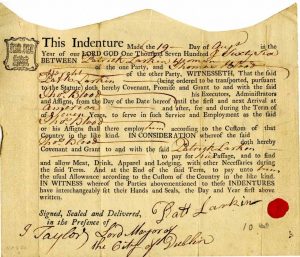 This Indenture Made the 19 Day of
Year of our LORD GOD One Thousand Seven Hundred
BETWEEN Patrick Larkin Yeoman
of the one Party, and Thomas Blood
of the other Party, WITNESSETH, That the said
Patk Larkin (being ordered to be transported, pursuant
to the Statute) doth hereby Covenant, Promise and Grant to and with the said
Thos Blood his Executors, Administrators
and Assigns, from the Day of the Date hereof until the first and next Arrival at
America and after, for and during the Term of
Seven Years, to serve in such Service and Employment as the said
Thos Blood
or his Assigns shall there employ him according to the Custom of that
Country in the like Kind. IN CONSIDERATION whereof the said
Thos Blood doth hereby
Covenant and Grant to and with the said Patrick Larkin
to pay for his Passage, and to find
and allow Meat, Drink, Apparel and Lodging, with other Necessaries during
the said Term. And at the End of the said Term, to pay unto him
the usual Allowance according to the Custom of the Country in the like kind.
IN WITNESS whereof the Parties abovementioned to these INDENTURES
have interchangeably put their Hands and Seals, the Day and Year first above
written.
Signed, Sealed and Delivered,
in the Presence of
Patt Larkin
J Taylor Lord Mayor of
the City of Dublin